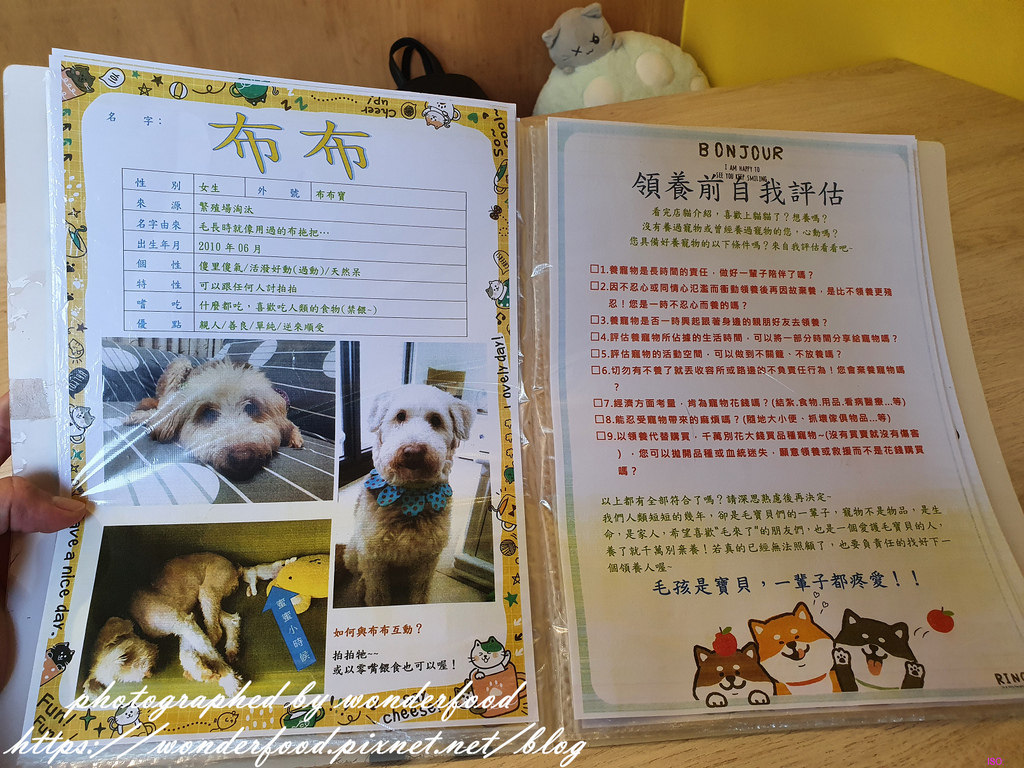 YO!
Cheer up!
So~ good~
名 字：
布布
性 別 女生 外 號 布布寶
來 源 繁殖場淘汰
名字由來 毛長時就像用過的布拖把…
出生年月 2010 年 06 月
個 性 傻里傻氣/活潑好動(過動)/天然呆
特 性 可以跟任何人討拍拍
嗜 吃 什麼都吃，喜歡吃人類的食物(禁餵~)
優 點 親人/善良/單純/逆來順受
蜜蜜小時候
如何與布布互動？
拍拍牠~~
或以零嘴餵食也可以喔！
have a nice day.
Fun!
Fun!
cheese!
BONJOUR
I AM HAPPY TO
SEE YOU KEEP SMILING
領養前自我評估
看完店貓介紹，喜歡上貓貓了？想養嗎？
沒有養過寵物或曾經養過寵物的您，心動嗎？
您具備好養寵物的以下條件嗎？來自我評估看看吧~
□1.養寵物是長時間的責任，做好一輩子陪伴了嗎？
□2.因不忍心或同情心氾濫而衝動領養後再因故棄養，是比不領養更殘
忍！您是一時不忍心而養的嗎？
□3.養寵物是否一時興起跟著身邊的親朋好友去領養？
□4.評估養寵物所佔據的生活時間，可以將一部分時間分享給寵物嗎？
□5.評估寵物的活動空間，可以做到不關籠、不放養嗎？
□6.切勿有不養了就丟收容所或路邊的不負責任行為！您會棄養寵物嗎
？
□7.經濟方面考量，肯為寵物花錢嗎？(結紮.食物.用品.看病醫療...等)
□8.能忍受寵物帶來的麻煩嗎？(隨地大小便、抓壞傢俱物品...等)
□9.以領養代替購買，千萬別花大錢買品種寵物~(沒有買賣就沒有傷害
)，您可以拋開品種或血統迷失，願意領養或救援而不是花錢購買
嗎？
以上都有全部符合了嗎？請深思熟慮後再決定~
我們人類短短的幾年，卻是毛寶貝們的一輩子，寵物不是物品，是生
命，是家人，希望喜歡"毛來了"的朋友們，也是一個愛護毛寶貝的人，
養了就千萬別棄養！若真的已經無法照顧了，也要負責任的找好下一
個領養人喔~
毛孩是寶貝，一輩子都疼愛！！
photographed by wonderfood
https://wonderfood.pixnet.net/blog